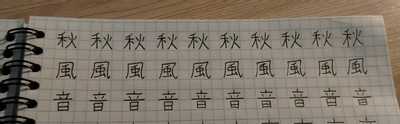 秋秋秋秋秋秋秋秋秋秋
風風風風風風風風風風
音音音音音音音音音音